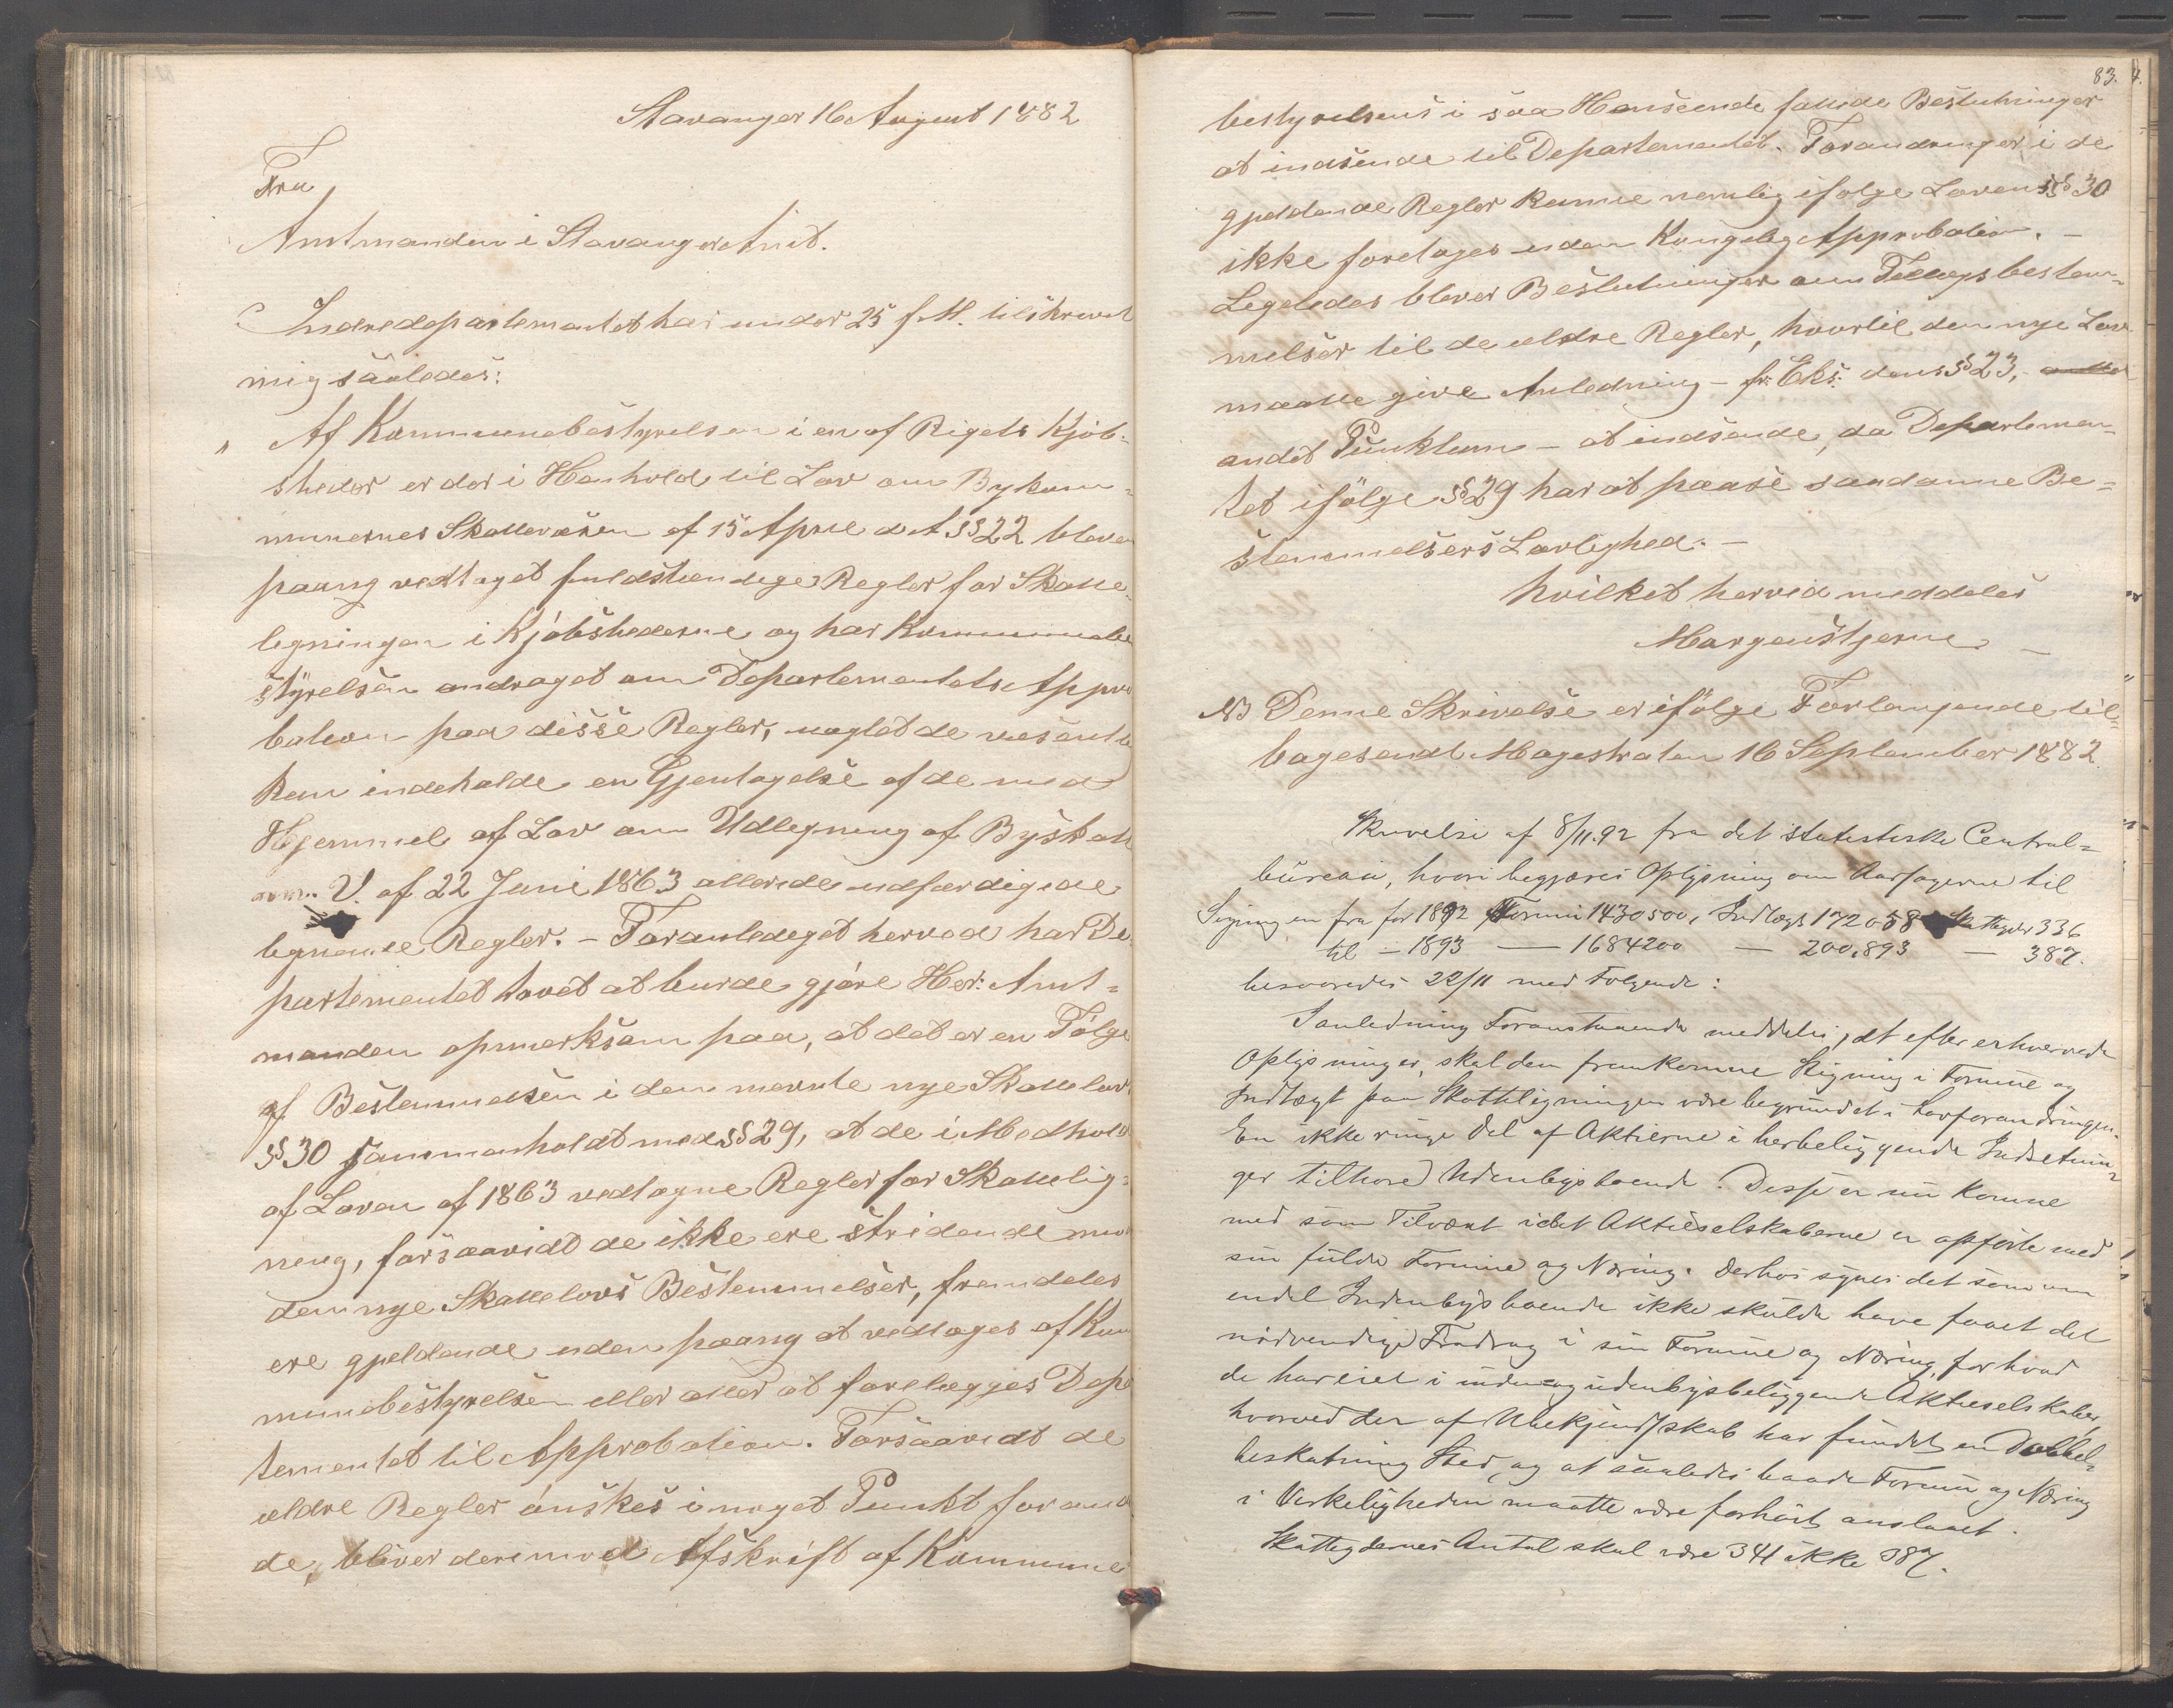 Stavanger 16 August 1882
Fra
Amtmanden i Stavanger Amt.
Indredepartementet har under 25 f. M. tilskrevet
mig saaledes:
" Af Kommunebestyrelsen i en af Rigets Kjøb-
steder er der i Henhold til Lov om Bykom-
munernes Skattevæsen af 15 April d. A. § 22 bleven
paany vedtaget fuldstændige Regler for Skatte-
ligningen i Kjøbstederne og har Kommunebe
styrelsen andraget om Departementets Appro
bation paa disse Regler, uagtet de væsentli
kun indeholde en Gjentagelse af de med
Hjemmel af Lov om Udligning af Byskat
m. V. af 22 Juni 1863 allerede udfærdigede
lignende Regler. – Foranlediget herved har De
partementet troet at burde gjøre Hr: Amt-
manden opmærksom paa, at det er en Følge
af Bestemmelsen i den nævnte nye Skattelov
§ 30 sammenholdt med § 29, at de i Medhold
af Loven af 1863 vedtagne Regler for Skattelig-
ning, forsaavidt de ikke ere stridende mod
den nye Skattelovs Bestemmelser, fremdeles
ere gjeldende uden paany at vedtages af Kom
munebestyrelsen eller at forelægges Depar
tementet til Approbation. Forsaavidt de
ældre Regler ønskes i noget Punkt forandre
de, bliver derimod Afskrift af Kommune
83. 4.
bestyrelsens i saa Henseende fattede Beslutninger
at indsende til Departementet. Forandringer i de
gjeldende Regler kunne nemlig ifølge Lovens § 30
ikke foretages uden Kongelig Approbation. –
Ligeledes bliver Beslutninger om Tillægsbestem-
melser til de ældre Regler, hvortil den nye Lov
maatte give Anledning – fr: Eks: dens § 23,
andet Punktum – at indsende, da Departemen-
tet ifølge § 29 har at paase saadanne Be-
stemmelsers Lovlighed. –
hvilket herved meddeles
Morgenstjerne –
NB Denne Skrivelse er ifølge Forlangende til-
bagesendt Magistraten 16 September 1882.
Skrivelse af 8/11.92 fra det statistiske Central-
büreau, hvori begjæres Oplysning om Aarsagerne til
Stigningen fra for 1892 Formue 1430500, Indtægt 172058 Skatteydere 336
til – 1893 — 1684200 — 200.893 — 387.
besvaredes 22/11 med Følgende:
I anledning Foranstaaende meddeles, at efter erhvervede
Oplysninger, skal den fremkomne Stigning i Formue og
Indtægt paa Skatteligningen være begrundet i Lovforandringen.
En ikke ringe Del af Aktierne i herbeliggende Indretnin-
ger tilhører Udenbysboende. Disse er nu komne
med som Tilvæxt idet Aktieselskaberne er opførte med
sin fulde Formue og Næring. Derhos synes det som om
endel Indenbysboende ikke skulde have faaet det
nødvendige Fradrag i sin Formue og Næring, for hvad
de har eiet i inden- og udenbysbeliggende Aktieselskaber,
hvorved der af Ubekjendtskab har fundet en Dobbel-
beskatning Sted, og at saaledes baade Formue og Næring
i Virkeligheden maatte være forhøit anslaaet.
Skatteydernes Antal skal være 341 ikke 387.